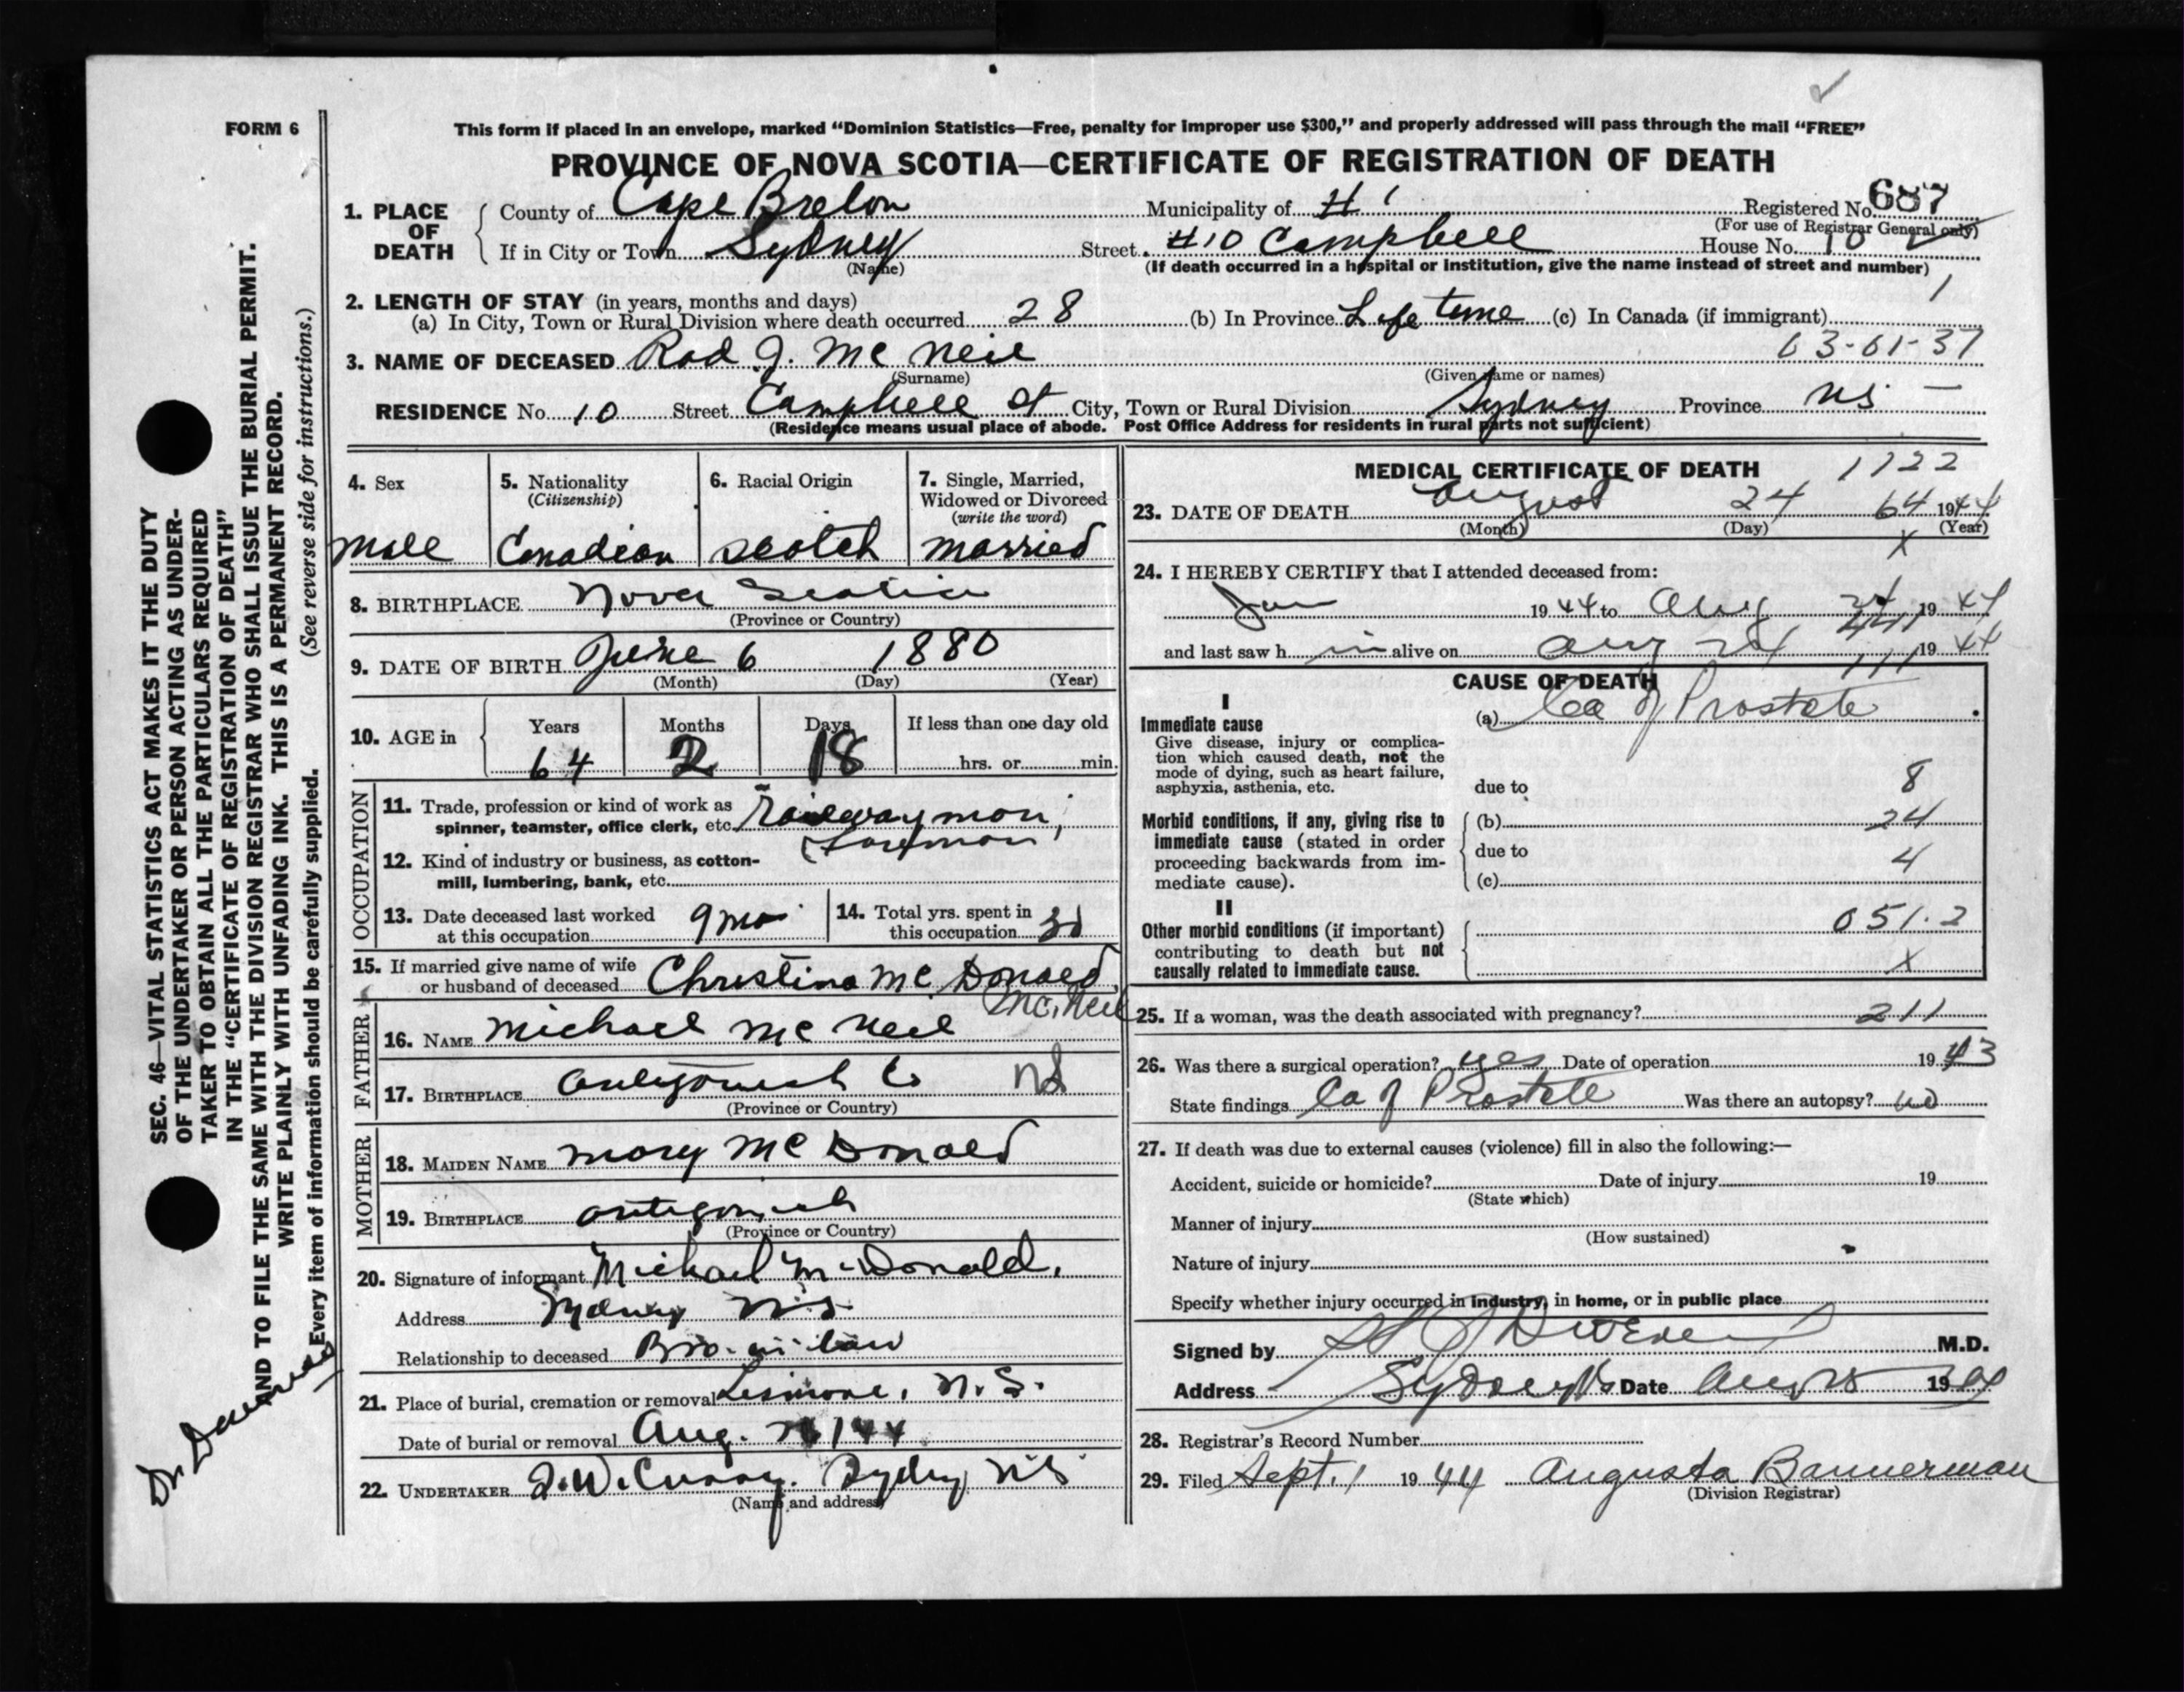 FORM 6
This form if placed in an envelope, marked “Dominion Statistics—Free, penalty for improper use $300,” and properly addressed will pass through the mail “FREE”
PROVINCE OF NOVA SCOTIA—CERTIFICATE OF REGISTRATION OF DEATH
1. PLACE OF DEATH
County of Cape Breton Municipality of # 1 Registered No. 687
(For use of Registrar General only)
If in City or Town Sydney Street #10 Campbell House No. 10
(Name) (If death occurred in a hospital or institution, give the name instead of street and number)
1
2. LENGTH OF STAY (in years, months and days)
(a) In City, Town or Rural Division where death occurred 28 (b) In Province Life time (c) In Canada (if immigrant)
3. NAME OF DECEASED Rod J. Mc Neil 63-61-37
(Surname) (Given name or names)
RESIDENCE No. 10 Street Campbell St City, Town or Rural Division Sydney Province NS —
(Residence means usual place of abode. Post Office Address for residents in rural parts not sufficient)
4. Sex
male
5. Nationality
(Citizenship)
Canadian
6. Racial Origin
Scotch
7. Single, Married,
Widowed or Divorced
(write the word)
married
8. BIRTHPLACE Nova Scotia
(Province or Country)
9. DATE OF BIRTH June 6 1880
(Month) (Day) (Year)
10. AGE in
Years Months Days If less than one day old
64 2 18 hrs. or min.
OCCUPATION
11. Trade, profession or kind of work as
spinner, teamster, office clerk, etc. Railwayman,
(foreman
12. Kind of industry or business, as cotton-
mill, lumbering, bank, etc.
13. Date deceased last worked
at this occupation 9 mo
14. Total yrs. spent in
this occupation
15. If married give name of wife
or husband of deceased Christina Mc Donald
McNeil
FATHER
16. NAME Michael Mc Neil
17. BIRTHPLACE Antigonish Co NS
(Province or Country)
MOTHER
18. MAIDEN NAME Mary Mc Donald
19. BIRTHPLACE Antigonish
(Province or Country)
20. Signature of informant Michael McDonald,
Address Sydney N.S
Relationship to deceased Bro-in-law
21. Place of burial, cremation or removal Lismore, N.S.
Date of burial or removal Aug. 44
22. UNDERTAKER J.W. Curry. Sydney NS
(Name and address)
MEDICAL CERTIFICATE OF DEATH 1122
23. DATE OF DEATH August 24 64 1944
(Month) (Day) (Year)
X
24. I HEREBY CERTIFY that I attended deceased from:
Jan 1944 to Aug 24 1944
and last saw h im alive on Aug 24 1944
CAUSE OF DEATH
I
Immediate cause
Give disease, injury or complica-
tion which caused death, not the
mode of dying, such as heart failure,
asphyxia, asthenia, etc.
(a) Ca of Prostate
due to 8
Morbid conditions, if any, giving rise to
immediate cause (stated in order
proceeding backwards from im-
mediate cause).
(b) 24
due to 4
(c)
II
Other morbid conditions (if important)
contributing to death but not
causally related to immediate cause.
051.2
X
25. If a woman, was the death associated with pregnancy? 211
26. Was there a surgical operation? yes Date of operation 1943
State findings Ca of Prostate Was there an autopsy? no
27. If death was due to external causes (violence) fill in also the following:—
Accident, suicide or homicide? Date of injury 19
(State which)
Manner of injury
(How sustained)
Nature of injury
Specify whether injury occurred in industry, in home, or in public place
Signed by M.D.
Address Sydney NS Date Aug 1944
28. Registrar's Record Number
29. Filed Sept. 1 1944 Augusta Bannerman
(Division Registrar)
SEC. 46—VITAL STATISTICS ACT MAKES IT THE DUTY
OF THE UNDERTAKER OR PERSON ACTING AS UNDER-
TAKER TO OBTAIN ALL THE PARTICULARS REQUIRED
IN THE “CERTIFICATE OF REGISTRATION OF DEATH”
AND TO FILE THE SAME WITH THE DIVISION REGISTRAR WHO SHALL ISSUE THE BURIAL PERMIT.
WRITE PLAINLY WITH UNFADING INK. THIS IS A PERMANENT RECORD.
Every item of information should be carefully supplied. (See reverse side for instructions.)
Dr